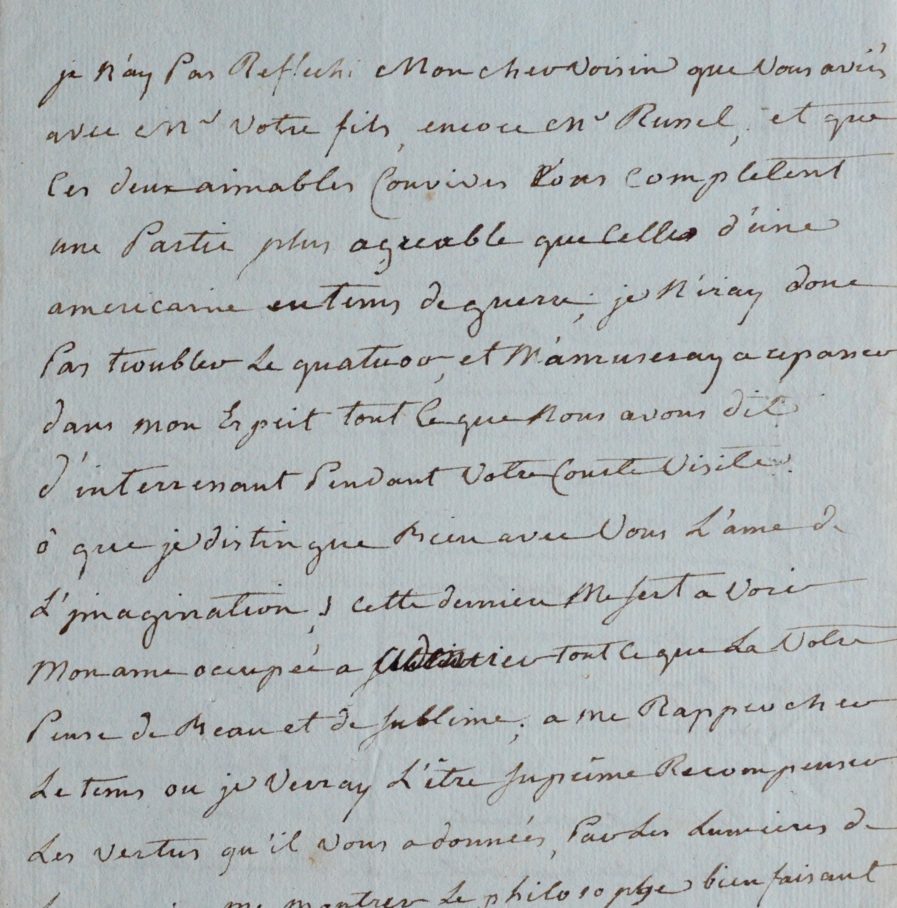 je n'ay Pas Reflechi Mon cher voisin que Vous aviés
avec Mr Votre fils, encore Mr Russel, et que
Ces deux aimables Convives Vous completent
une Partie plus agreable que Celle d'une
americaine en tems de guerre; je N'iray donc
Pas troubler Le quatuor, et M'amuseray a repasser
dans mon Esprit tout Ce que Nous avons dit
d'interressant Pendant Votre Courte Visite.
ô que je distingue Bien avec Vous L'ame de
L'jmagination, cette derniere Me sert a Voir
Mon ame occupée a tout Ce que La Votre
Pense de Beau et de sublime; a me Rapprocher
Le tems ou je Verray L'être suprême Recompenser
Les vertus qu'il Vous a données, Par Les Lumieres de
me montrer Le philosophe bienfaisant